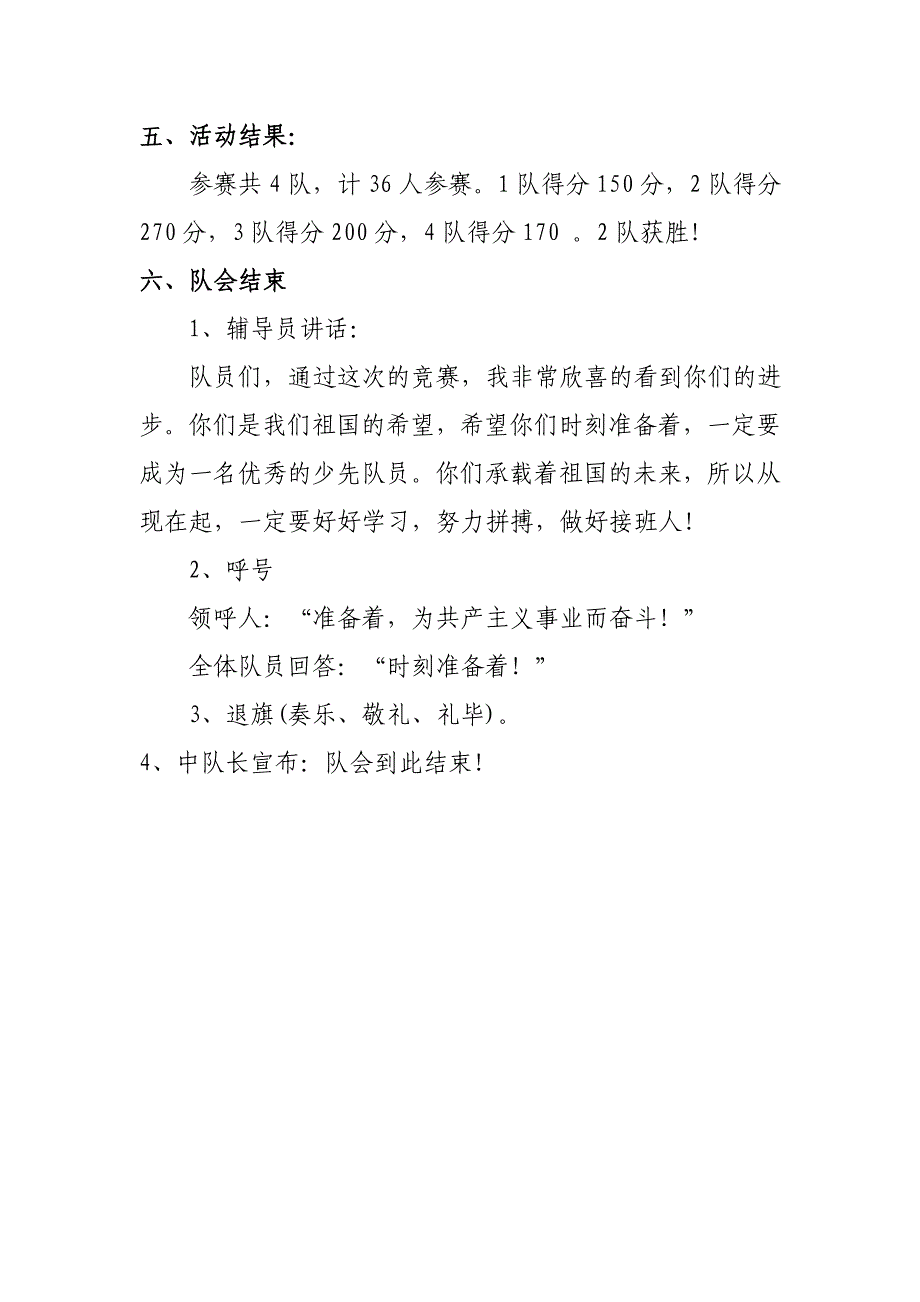 五、活动结果：
参赛共 4 队，计 36 人参赛。1 队得分 150 分，2 队得分
270 分，3 队得分 200 分，4 队得分 170 。2 队获胜！
六、队会结束
1、辅导员讲话：
队员们，通过这次的竞赛，我非常欣喜的看到你们的进
步。你们是我们祖国的希望，希望你们时刻准备着，一定要
成为一名优秀的少先队员。你们承载着祖国的未来，所以从
现在起，一定要好好学习，努力拼搏，做好接班人！
2、呼号
领呼人：“准备着，为共产主义事业而奋斗！”
全体队员回答：“时刻准备着！”
3、退旗(奏乐、敬礼、礼毕)。
4、中队长宣布：队会到此结束！